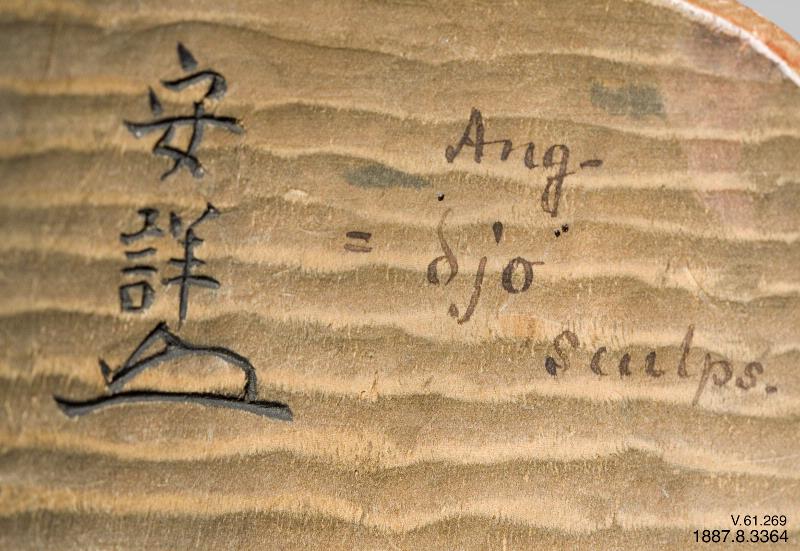 安
詳
Ang-
= djo
sculps.
V.61.269
1887.8.3364